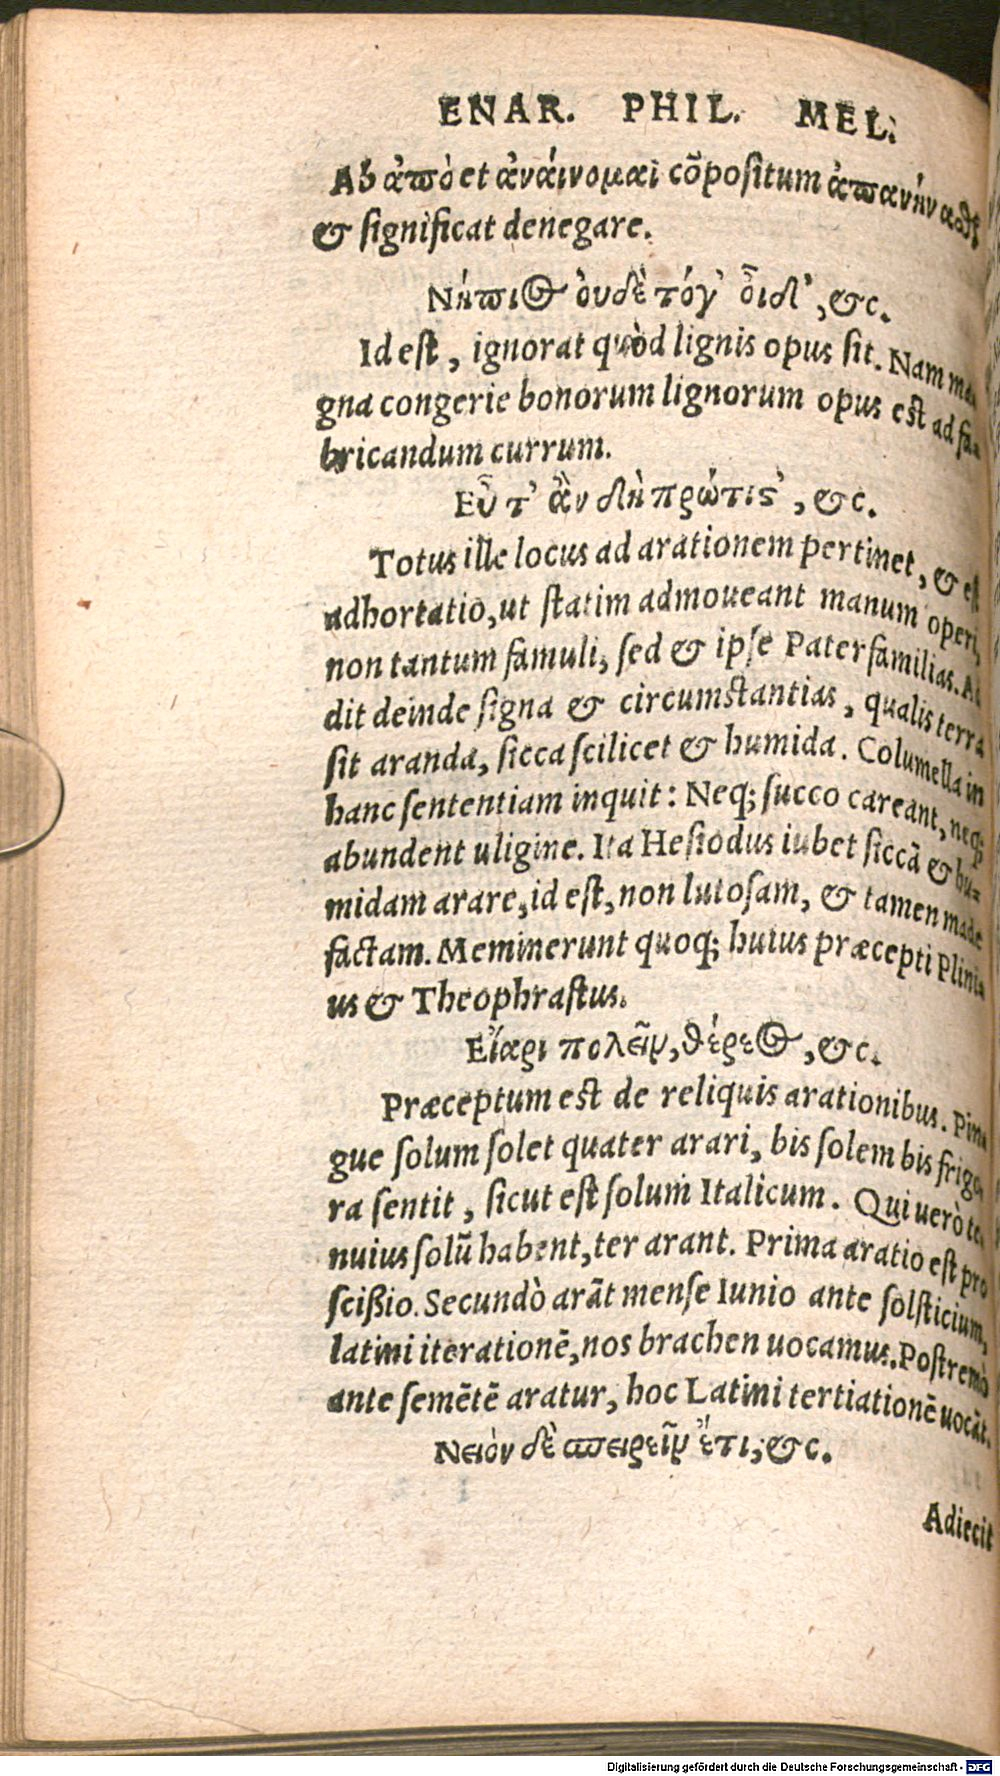 ENAR. PHIL. MEL.
Ab ἀπὸ et ἀνάινομαι cõpositum ἀπανήναθ
& significat denegare.
Νήπιος ὀυδὲ τόγ' ὀ͂ιδ', &c.
Id est, ignorat quòd lignis opus sit. Nam ma
gna congerie bonorum lignorum opus est ad fa-
bricandum currum.
Εὖ τ' ἂν δὴ πρώτις', &c.
Totus ille locus ad arationem pertinet, & est
adhortatio, ut statim admoueant manum operi,
non tantum famuli, sed & ipse Paterfamilias. Ad
dit deinde signa & circumstantias, qualis terra
sit aranda, sicca scilicet & humida. Columella in
hanc sententiam inquit: Neq; succo careant, neq;
abundent uligine. Ita Hesiodus iubet siccã & hu-
midam arare, id est, non lutosam, & tamen made
factam. Meminerunt quoq; huius præcepti Plini
us & Theophrastus.
Εἴαρι πολεῖν, θέρεος, &c.
Præceptum est de reliquis arationibus. Pin
gue solum solet quater arari, bis solem bis frigo
ra sentit, sicut est solum Italicum. Qui uerò te
nuius solũ habent, ter arant. Prima aratio est pro
scißio. Secundò arãt mense Iunio ante solsticium,
latini iterationẽ, nos brachen uocamus. Postremò
ante semẽtẽ aratur, hoc Latini tertiationẽ uocãt.
Νειὸν δὲ σπειρεῖν ἔτι, &c.
Adiecit
Digitalisierung gefördert durch die Deutsche Forschungsgemeinschaft - DFG